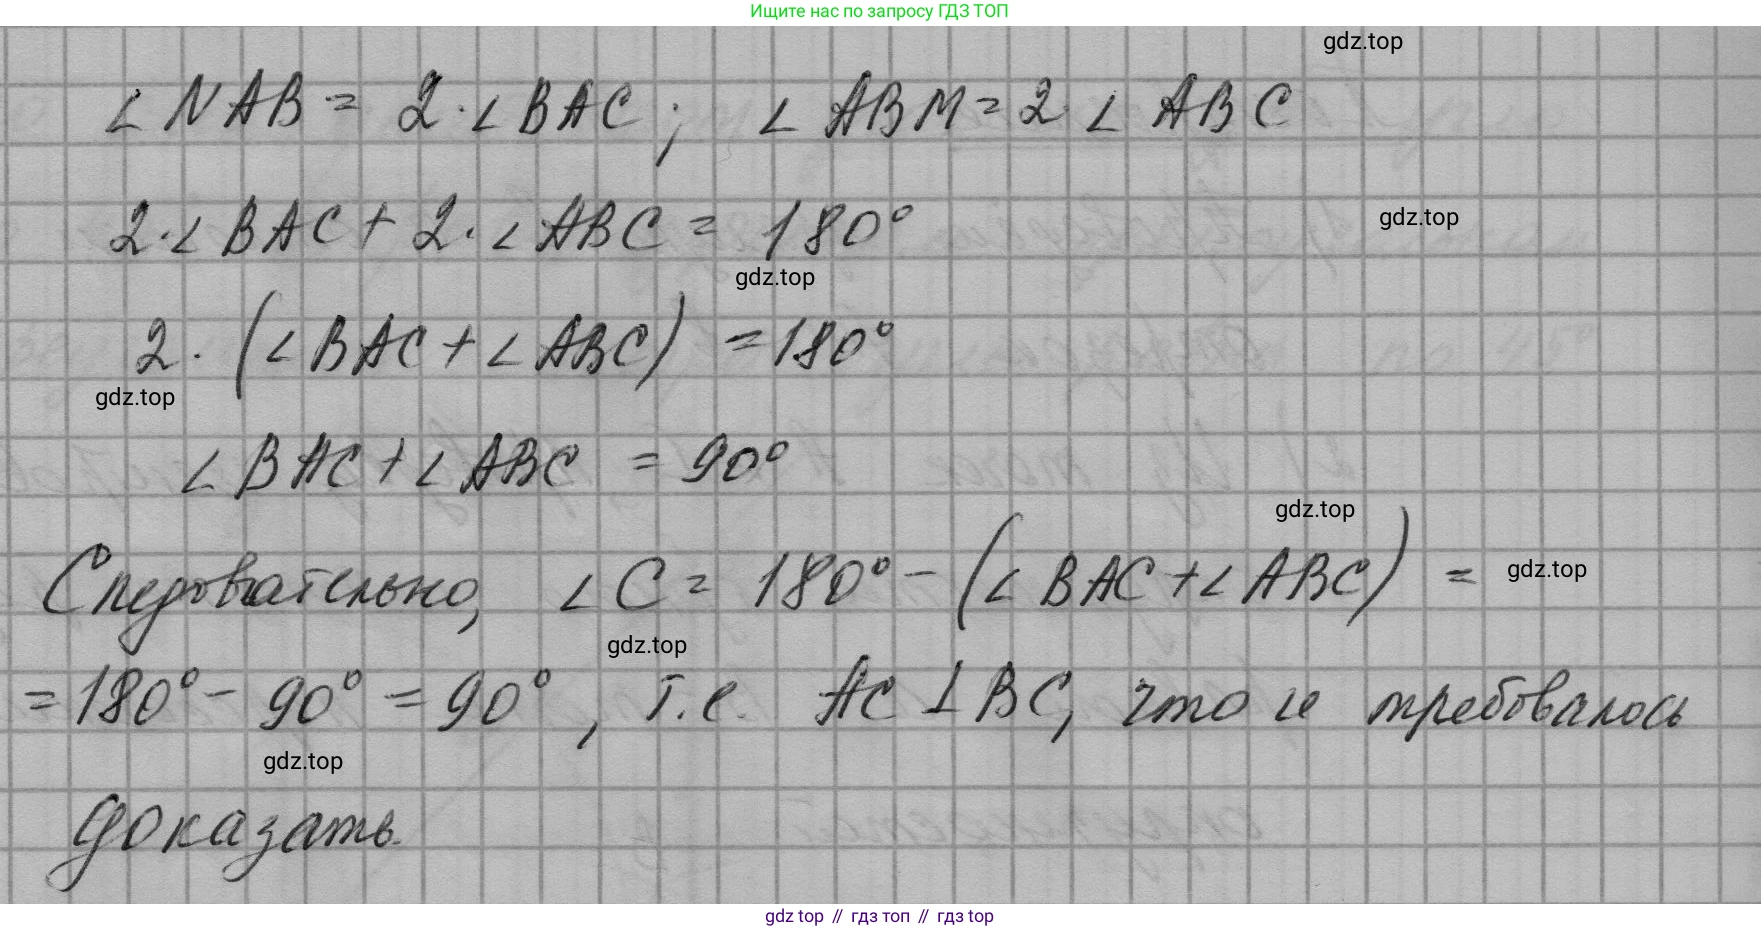 Ищите нас по запросу ГДЗ ТОП
gdz.top
∠NAB = 2·∠BAC; ∠ABM = 2∠ABC
2·∠BAC + 2·∠ABC = 180°
gdz.top
gdz.top
2·(∠BAC + ∠ABC) = 180°
gdz.top
∠BAC + ∠ABC = 90°
gdz.top
Следовательно, ∠C = 180° - (∠BAC + ∠ABC) =
gdz.top
gdz.top
= 180° - 90° = 90°, т.е. AC ⊥ BC, что и требовалось
gdz.top
доказать.
gdz top // гдз топ // гдз top